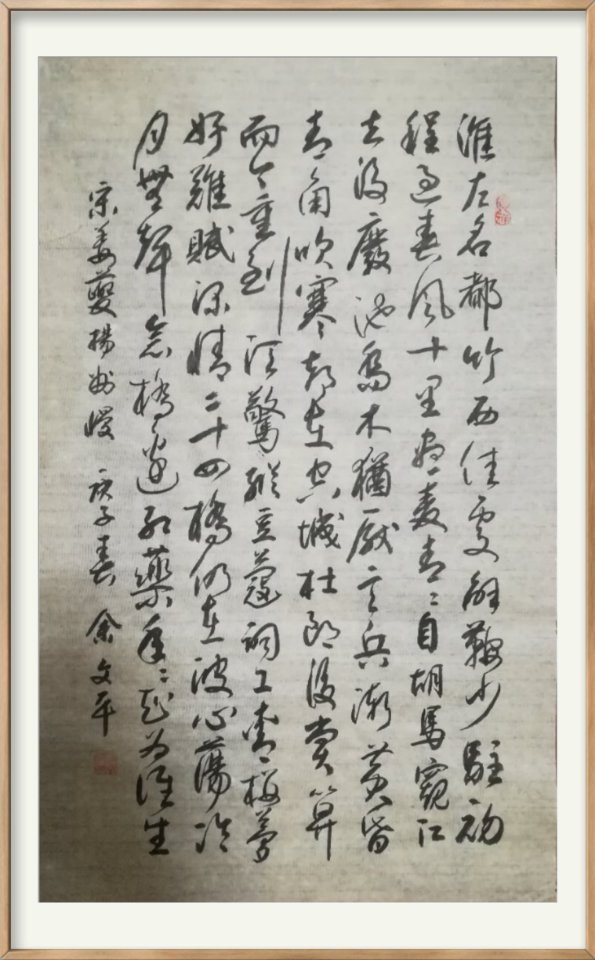 淮左名都竹西佳處解鞍少駐初
程過春風十里盡麥青々自胡馬窺江
去後廢池喬木猶厭言兵漸黄昏
清角吹寒都在空城杜郎俊賞算
而今重到須驚縱豆蔻詞工青樓夢
好難賦深情二十四橋仍在波心蕩冷
月無聲念橋邊紅藥年々知為誰生
宋姜夔揚州慢 庚子春 余文平